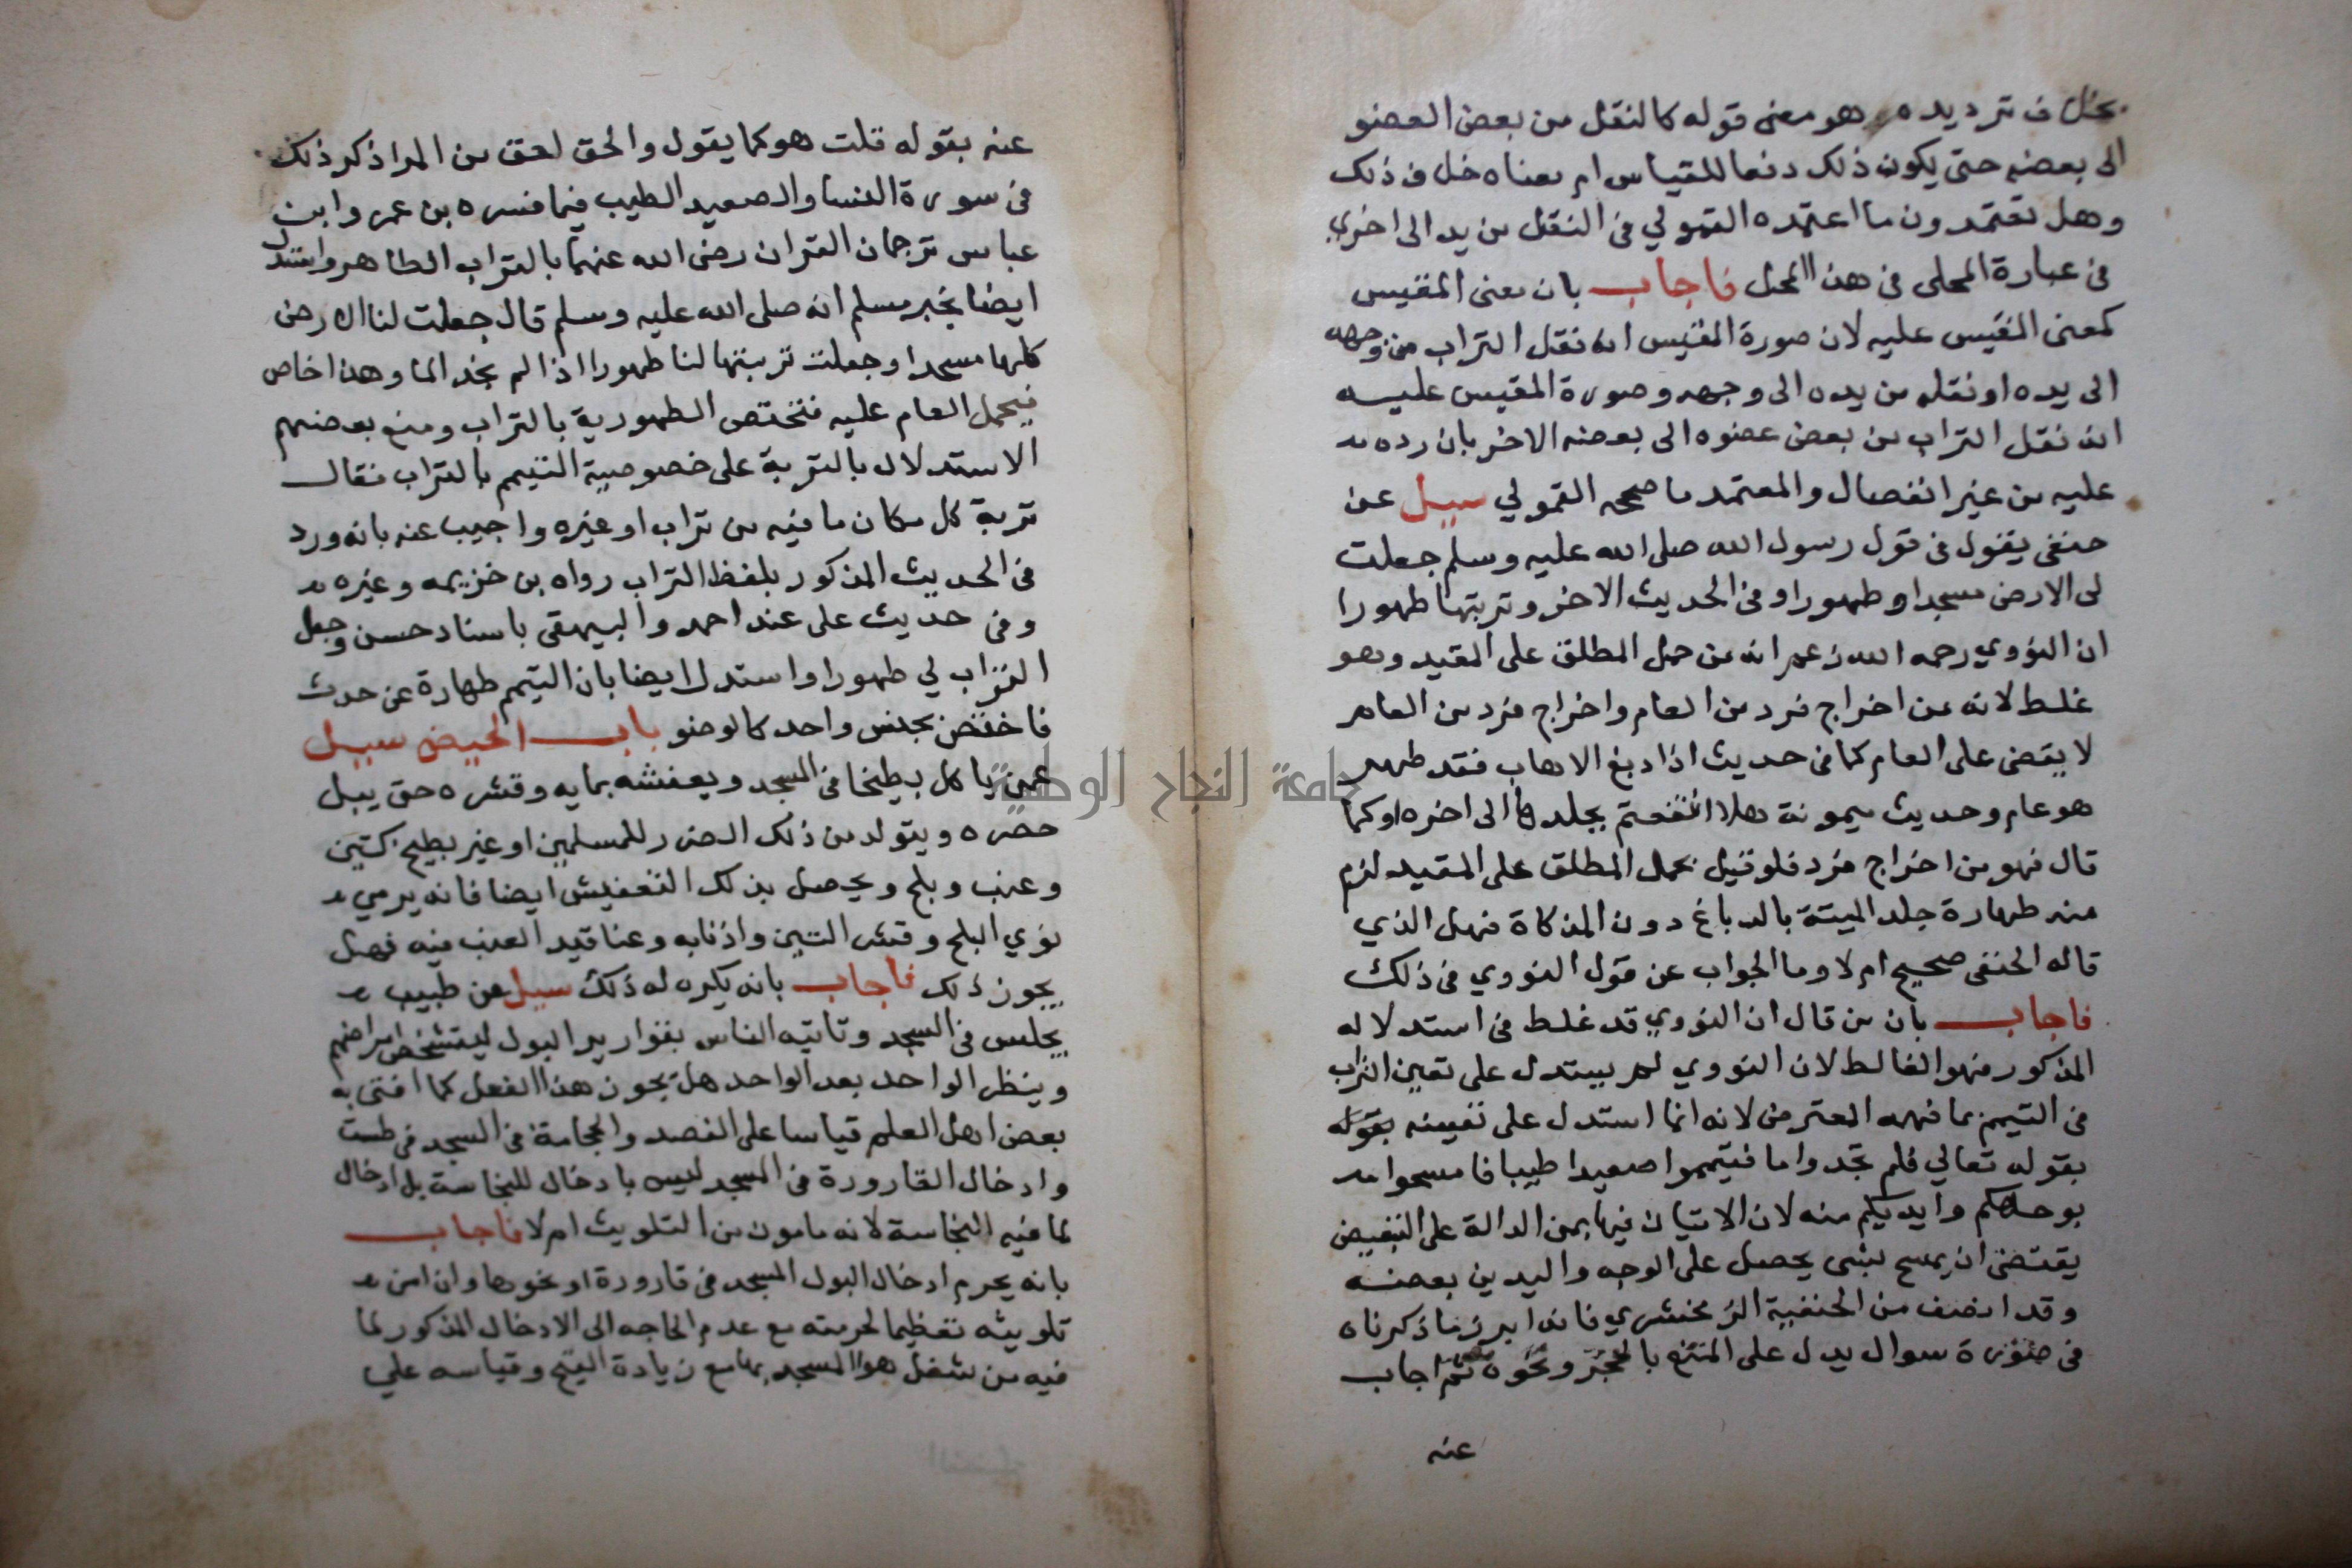 بخلاف ترديده وهو معنى قوله كالنقل من بعض العضو
الى بعضه حتى يكون ذلك دفعا للقياس ام معناه خلاف ذلك
وهل تعتمدون ما اعتمده القمولي في النقل من يد الى اخرى
في عبارة المحلى في هذا المحل فاجاب بان معنى المقيس
كمعنى المقيس عليه لان صورة المقيس انه نقل التراب من وجهه
الى يده او نقله من يده الى وجهه وصورة المقيس عليه
انه نقل التراب من بعض عضوه الى بعضه الاخر بان رده
عليه من غير انفصال والمعتمد ما صححه القمولي سيل عن
حنفى يقول في قول رسول الله صلى الله عليه وسلم جعلت
لى الارض مسجدا وطهورا وفى الحديث الاخر وتربتها طهورا
ان النووي رحمه الله زعم انه من حمل المطلق على المقيد وهو
غلط لانه من اخراج فرد من العام واخراج فرد من العام
لا يقضى على العام كما في حديث اذا دبغ الاهاب فقد طهر
هو عام وحديث ميمونة هلا انتفعتم بجلدها الى اخره او كما
قال فهو من اخراج فرد فلو قيل بحمل المطلق على المقيد لزم
منه طهارة جلد الميتة بالدباغ دون المذكاة فهل الذي
قاله الحنفى صحيح ام لا وما الجواب عن قول النووي في ذلك
فاجاب بان من قال ان النووي قد غلط في استدلاله
المذكور فهو الغالط لان النووي لم يستدل على تعين التراب
في التيمم بما فهمه المعترض لانه انما استدل على تعيينه بقوله
بقوله تعالي فلم تجدوا ما فتيمموا صعيدا طيبا فامسحوا
بوجوهكم وايديكم منه لان الاتيان فيها بمن الدالة على التبعيض
يقتضى ان يمسح بشى يحصل على الوجه واليدين بعضه
وقد انصف من الحنفية الزمخشري فانه ابرز ما ذكرناه
في صورة سوال يدل على المنع بالحجر ونحوه ثم اجاب
عنه
عنه بقوله قلت هو كما يقول والحق احق من المرا ذكر ذلك
في سورة النسا والصعيد الطيب فيما فسره بن عمر وابن
عباس ترجمان القران رضى الله عنهما بالتراب الطاهر واستدل
ايضا بخبر مسلم انه صلى الله عليه وسلم قال جعلت لنا الارض
كلها مسجدا وجعلت تربتها لنا طهورا اذا لم نجد الما وهذا خاص
فيحمل العام عليه فتختص الطهورية بالتراب ومنع بعضهم
الاستدلال بالتربة على خصوصية التيمم بالتراب فقال
تربة كل مكان ما فيه من تراب او غيره واجيب عنه بانه ورد
في الحديث المذكور بلفظ التراب رواه بن خزيمه وغيره
وفي حديث على عند احمد والبيهقى باسناد حسن وجعل
التراب لي طهورا واستدل ايضا بان التيمم طهارة عن حدث
فاختص بجنس واحد كالوضو باب الحيض سيل
عمن ياكل بطيخا في المسجد ويعفشه بمايه وقشره حتى يبل
حصره ويتولد من ذلك الضرر للمسلمين او غير بطيح كتين
وعنب وبلح ويحصل بذلك التعفيش ايضا فانه يرمي
نوي البلح وقشر التين واذنابه وعناقيد العنب فيه فهل
يجوز ذلك فاجاب بانه يكره له ذلك سيل عن طبيب
يجلس في المسجد وتاتيه الناس بقوارير البول ليشخص امراضهم
وينظر الواحد بعد الواحد هل يجوز هذا الفعل كما افتى به
بعض اهل العلم قياسا على الفصد والحجامة في المسجد في طست
وادخال القارورة في المسجد ليس بادخال للنجاسة بل ادخال
لما فيه النجاسة لانه مامون من التلويث ام لا فاجاب
بانه يحرم ادخال البول المسجد في قارورة او نحوها وان امن
تلويثه تعظيما لحرمته مع عدم الحاجه الى الادخال المذكور لما
فيه من شغل هوا المسجد بها مع زيادة القبح وقياسه علي
جامعة النجاح الوطنية